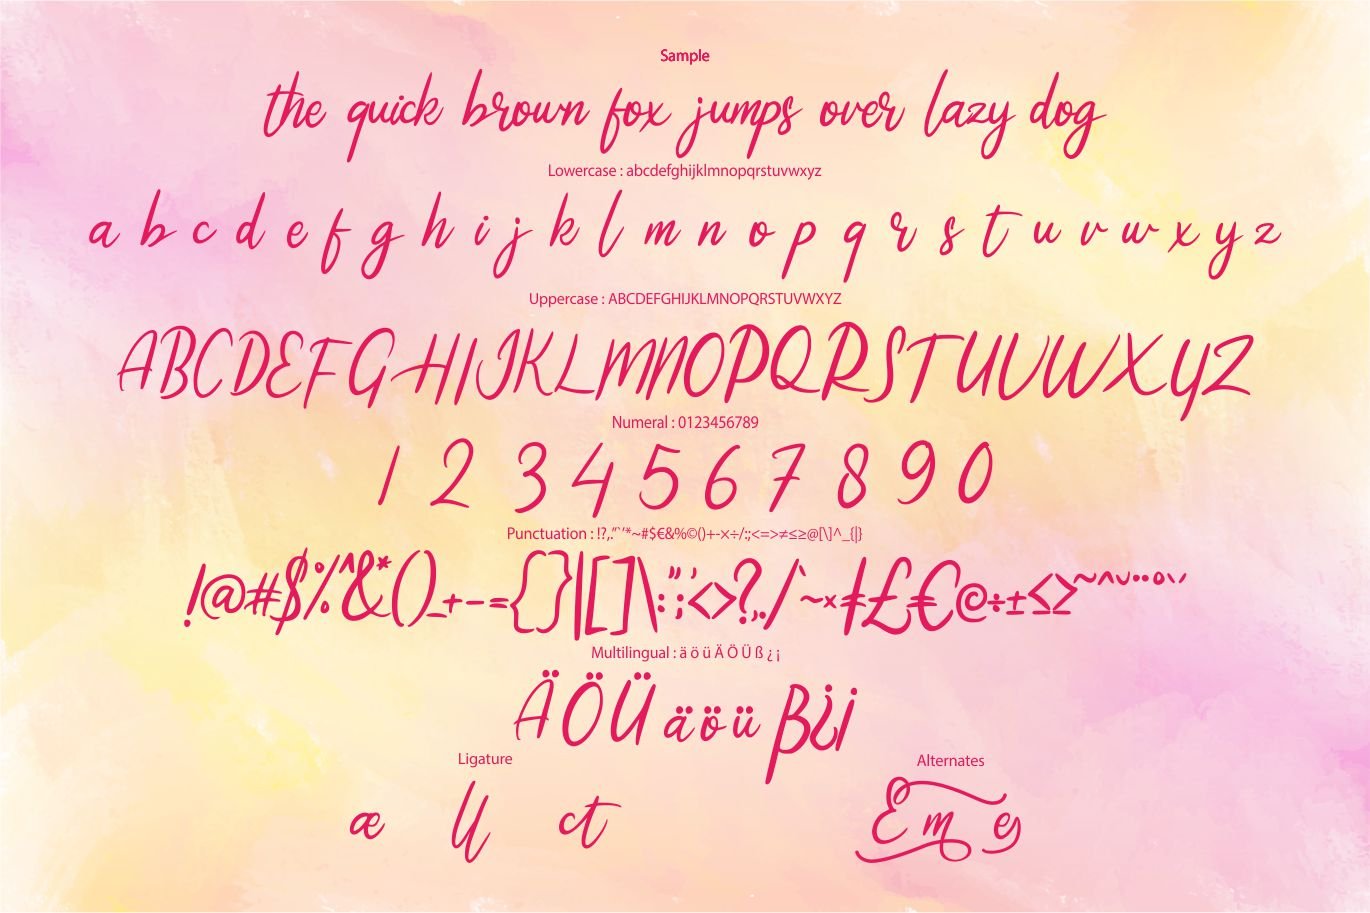 Sample
the quick brown fox jumps over lazy dog
Lowercase : abcdefghijklmnopqrstuvwxyz
a b c d e f g h i j k l m n o p q r s t u v w x y z
Uppercase : ABCDEFGHIJKLMNOPQRSTUVWXYZ
ABCDEFGHIJKLMNOPQRSTUVWXYZ
Numeral : 0123456789
1 2 3 4 5 6 7 8 9 0
Punctuation : !?,.”`’*~#$€&%©()+-×÷/:;<=>≠≤≥@[\]^_{|}
!@#$%^&*()_+-={}|[]\:";'<>?,./`~×≠£€©÷±≤≥~^˘¨°`´
Multilingual : ä ö ü Ä Ö Ü ß ¿ ¡
ÄÖÜäöüß¿¡
Ligature Alternates
æ ll ct E m e